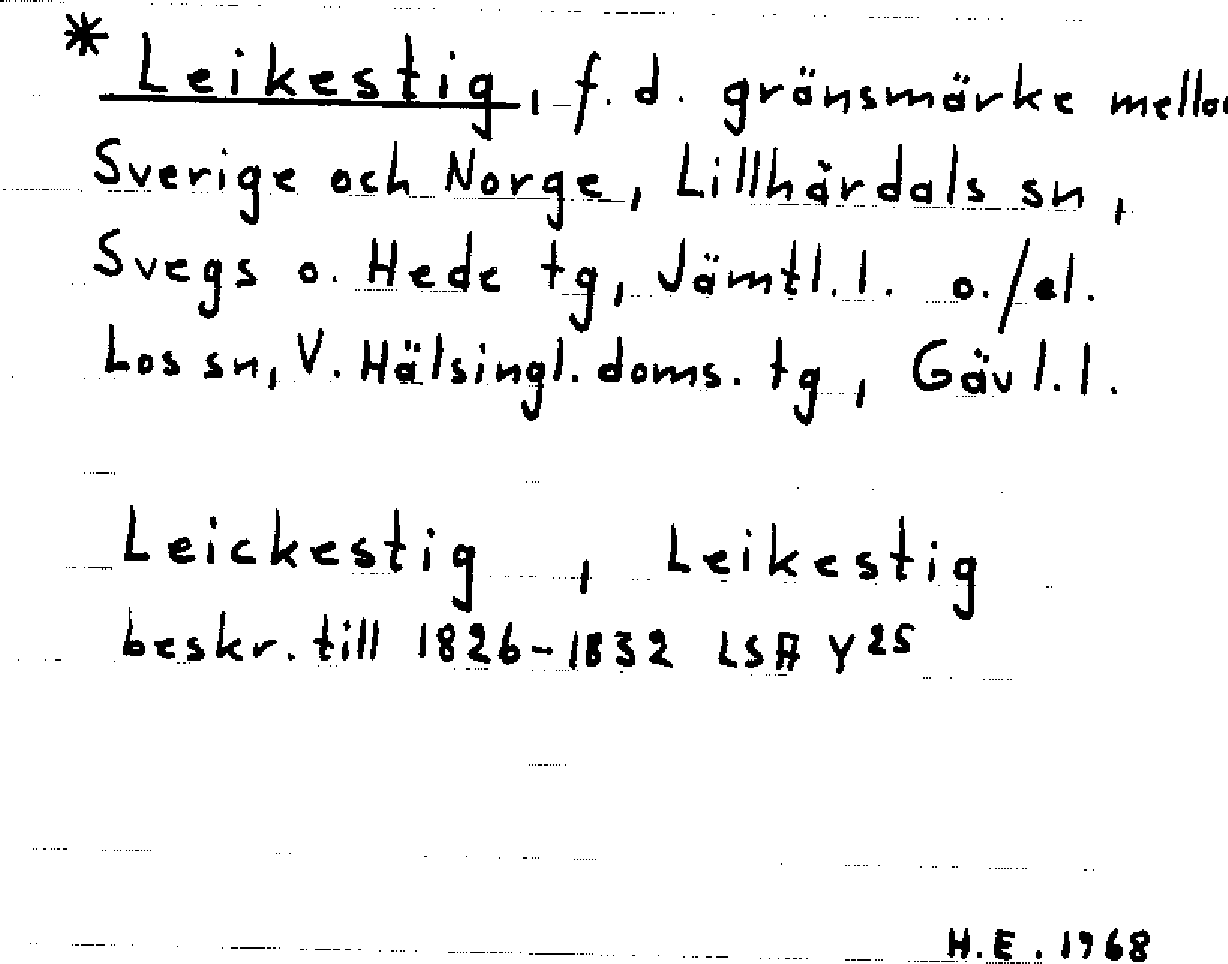 * Leikestig, f. d. gränsmärke mellan
Sverige och Norge, Lillhärdals sn,
Svegs o. Hede tg, Jämtl. l. o./el.
Los sn, V. Hälsingl. doms. tg, Gävl. l.
Leickestig , Leikestig
beskr. till 1826-1832 LSA Y25
H.E. 1968